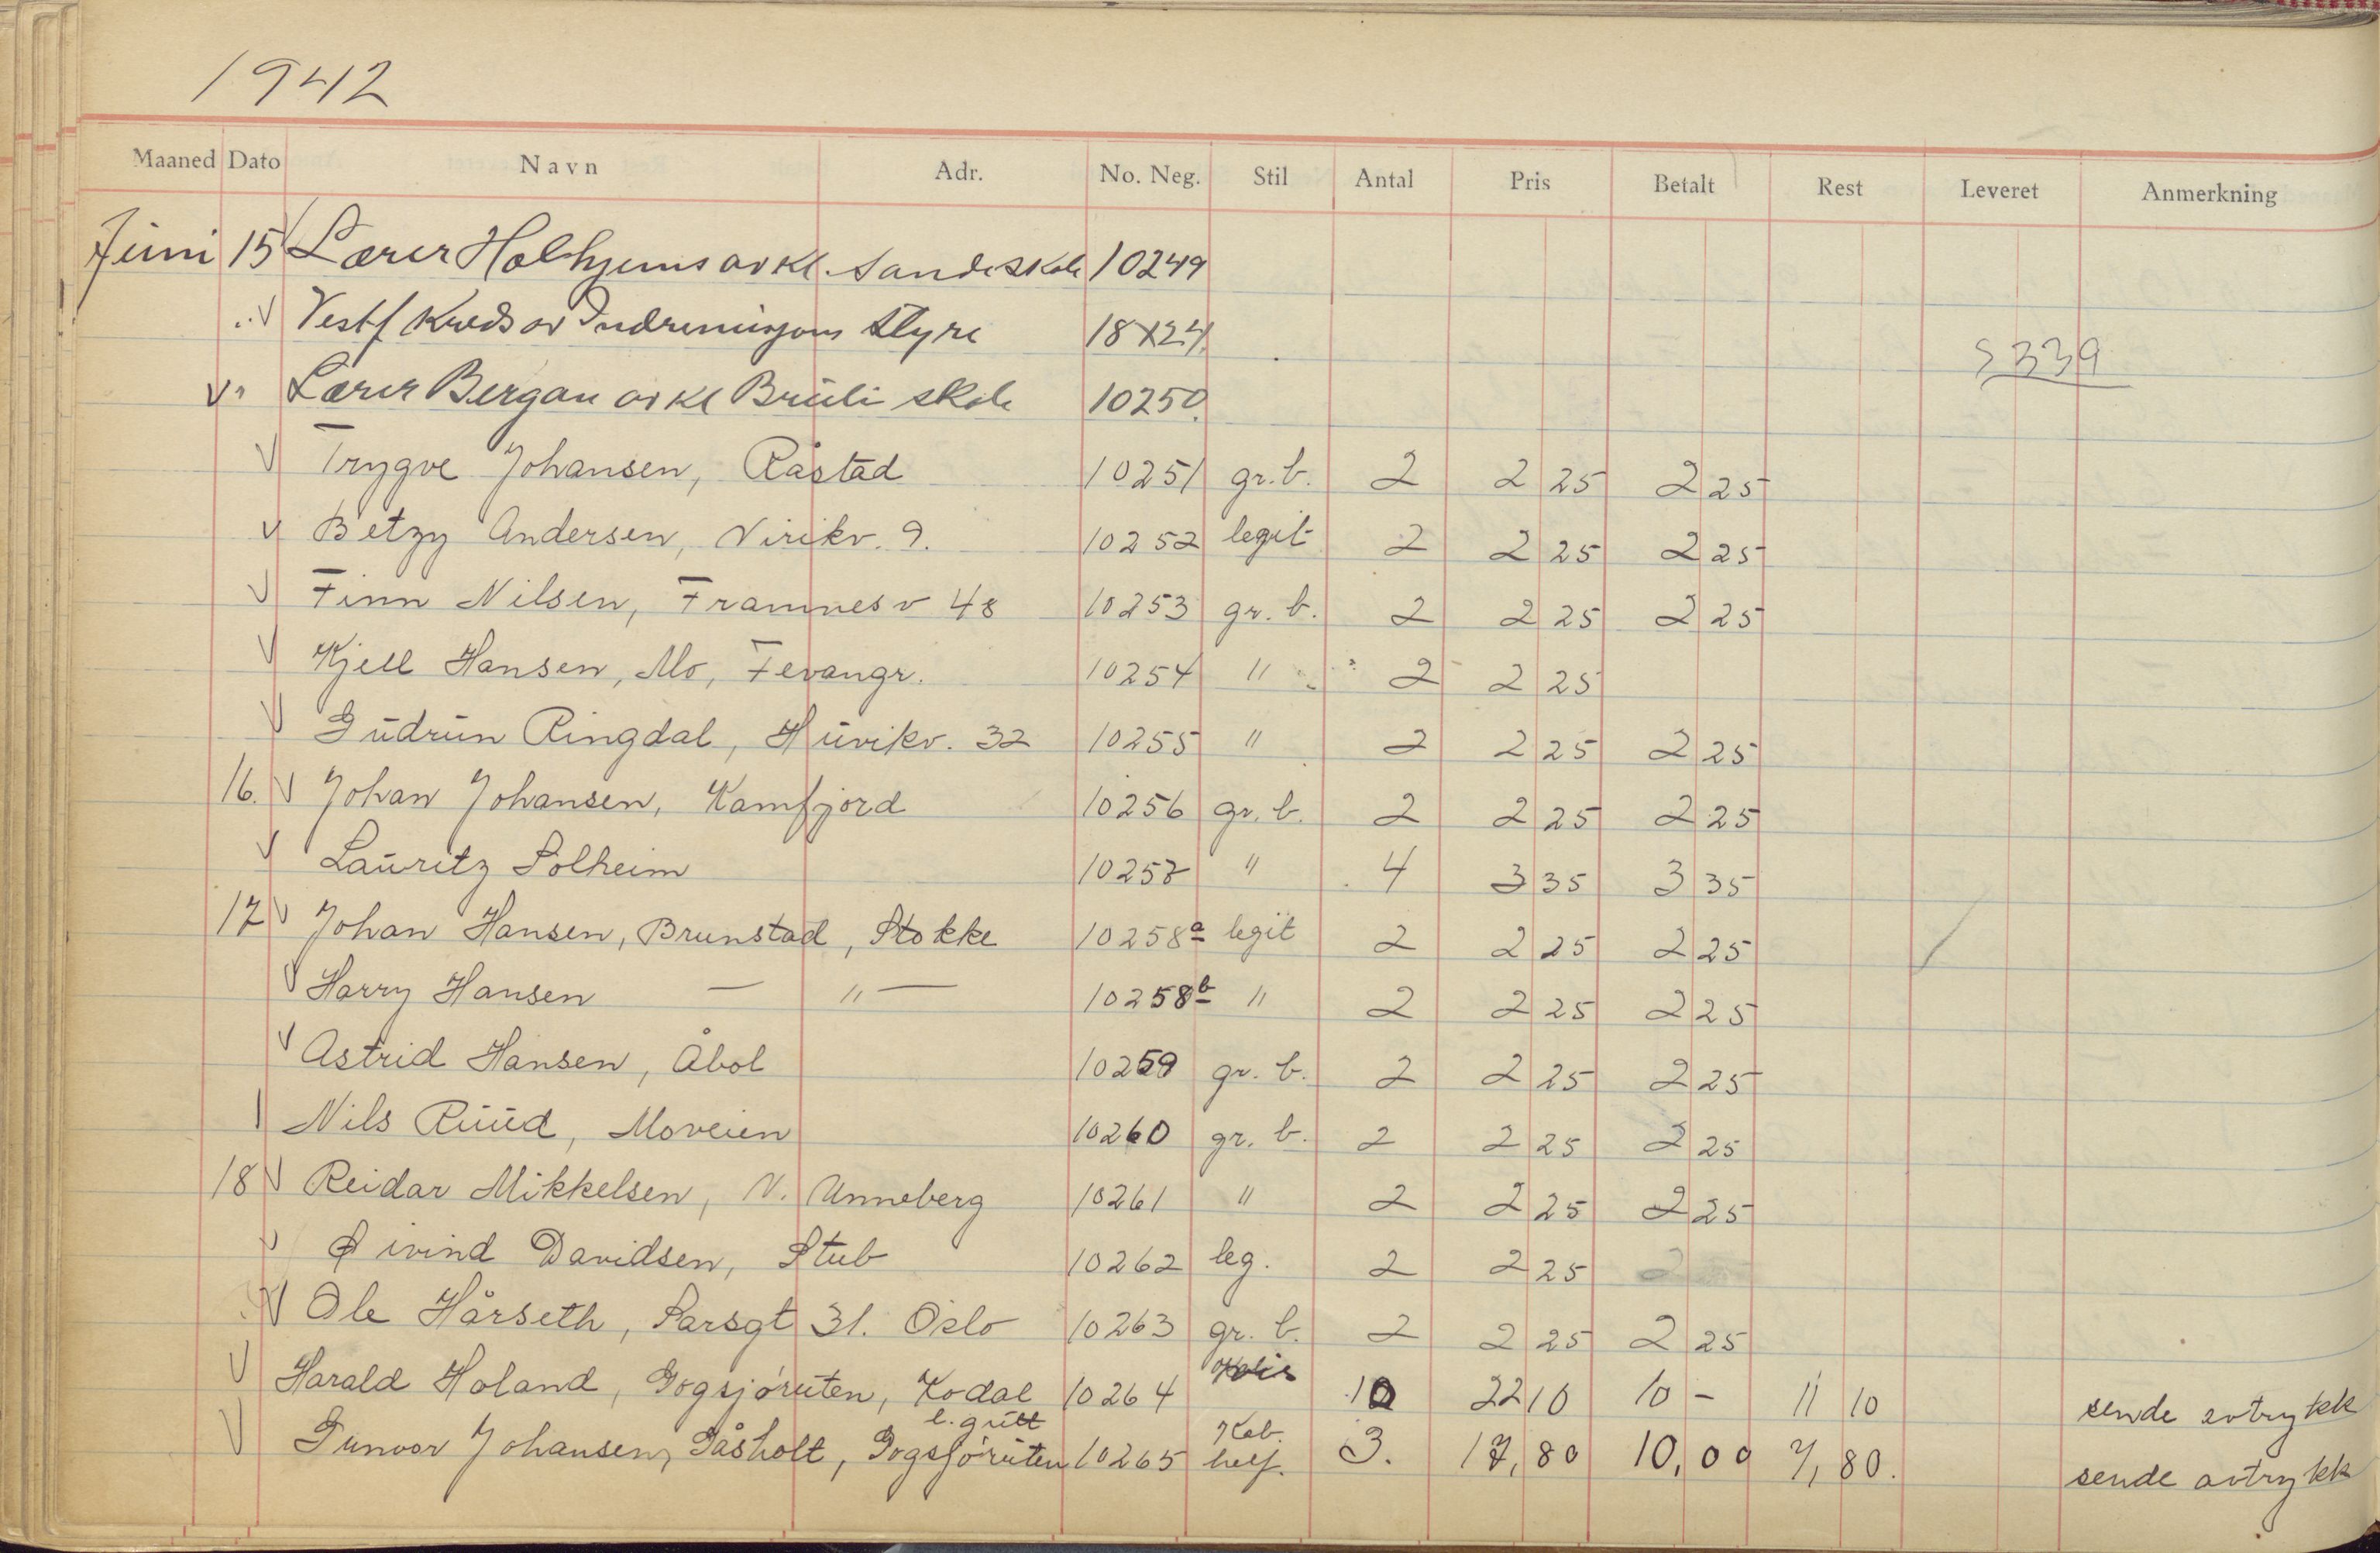 1942
Maaned Dato Navn Adr. No. Neg. Stil Antal Pris Betalt Rest Leveret Anmerkning
Juni 15 Lærer Holhjems av kl. Sandeskole 10249
" Vestf Kreds av Indremisjons Styre 18X24
S 339
" Lærer Bergan av kl Brüli skole 10250.
Trygve Johansen, Råstad 10251 gr. b. 2 2 25 2 25
Betzy Andersen, Virikv. 9. 10252 legit 2 2 25 2 25
Finn Nilsen, Framnesv 48 10253 gr. b. 2 2 25 2 25
Kjell Hansen, Mo, Fevangr. 10254 " 2 2 25
Gŭdrŭn Ringdal, Hŭvikv. 32 10255 " 2 2 25 2 25
16. Johan Johansen, Kamfjord 10256 gr. b. 2 2 25 2 25
Laŭritz Solheim 10257 " 4 3 35 3 35
17 Johan Hansen, Brunstad, Stokke 10258a legit 2 2 25 2 25
Harry Hansen — " — 10258b " 2 2 25 2 25
Astrid Hansen, Åbol 10259 gr. b. 2 2 25 2 25
Nils Rŭŭd, Moveien 10260 gr. b. 2 2 25 2 25
18 Reidar Mikkelsen, N. Unneberg 10261 " 2 2 25 2 25
Øivind Davidsen, Stub 10262 leg. 2 2 25 2
Ole Hårseth, Sarsgt 31. Oslo 10263 gr. b. 2 2 25 2 25
Harald Holand, Gogsjørŭten, Kodal 10264 10 22 10 10 - 11 10 sende avtrykk
Gunvor Johansen, Gåsholt, Gogsjørŭten 10265 Kab. helf. 3. 17,80 10,00 7,80. sende avtrykk